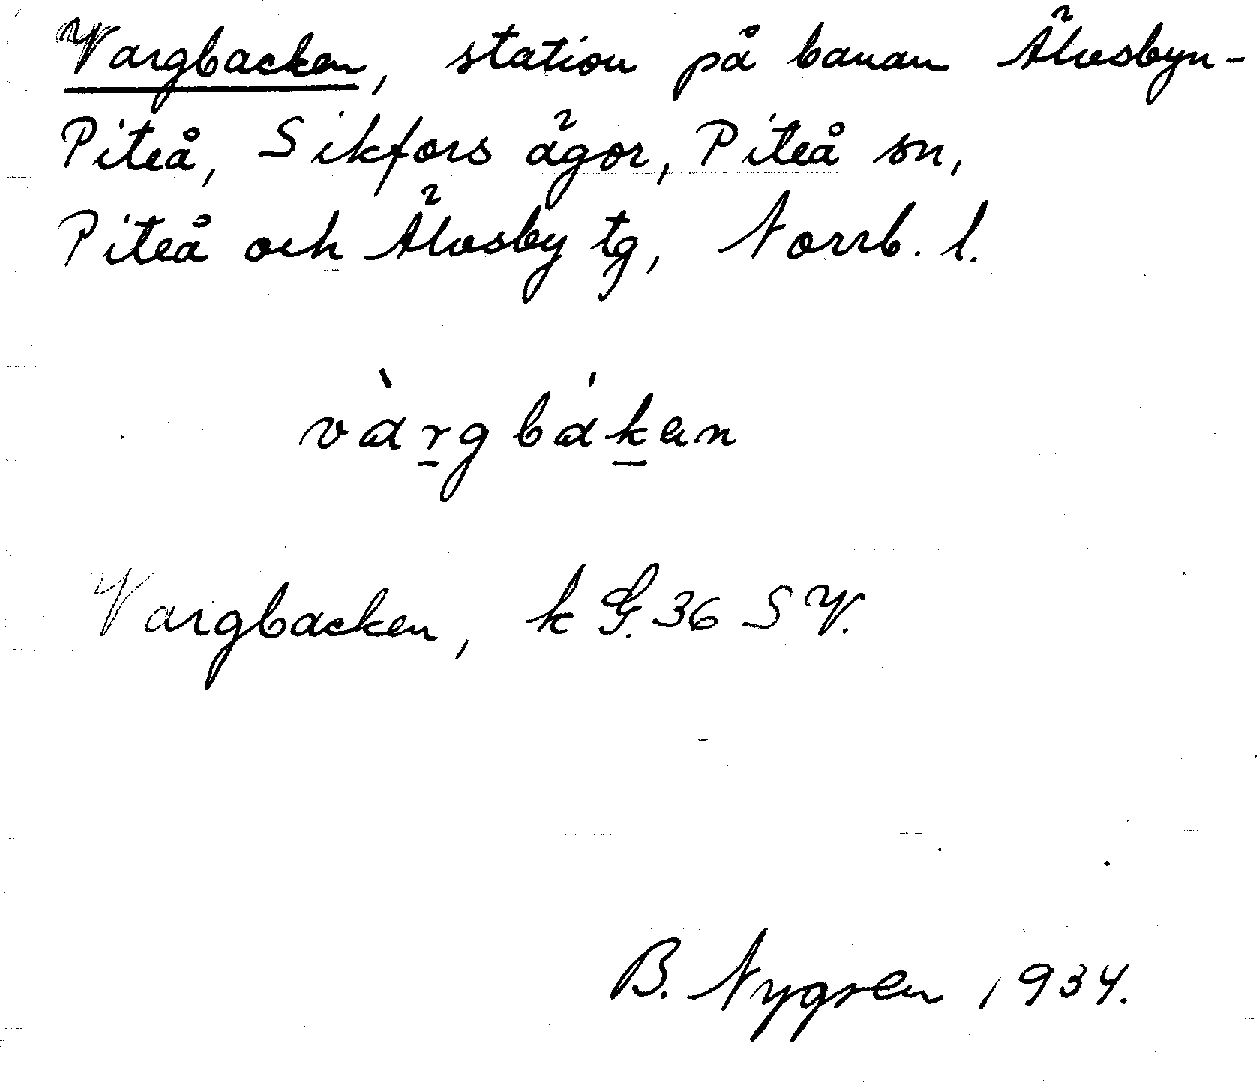 Vargbacken, station på banan Älvsbyn-
Piteå, Sikfors ägor, Piteå sn,
Piteå och Älvsby tg, Norrb. l.
và̱rgbáḵen
Vargbacken, k G.36 SV.
B. Nygren 1934.